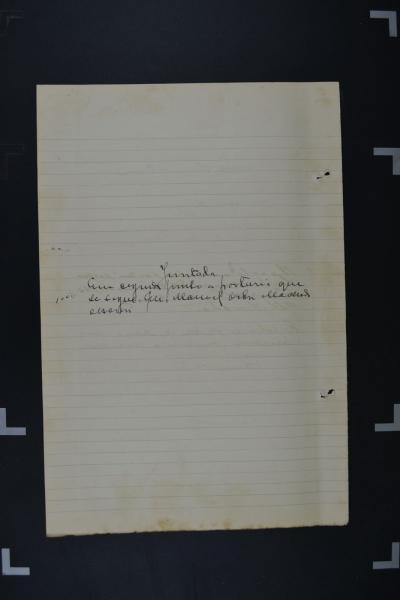 Juntada
Em seguida junto a portaria que
se segue. Eu, Manoel
escrivão